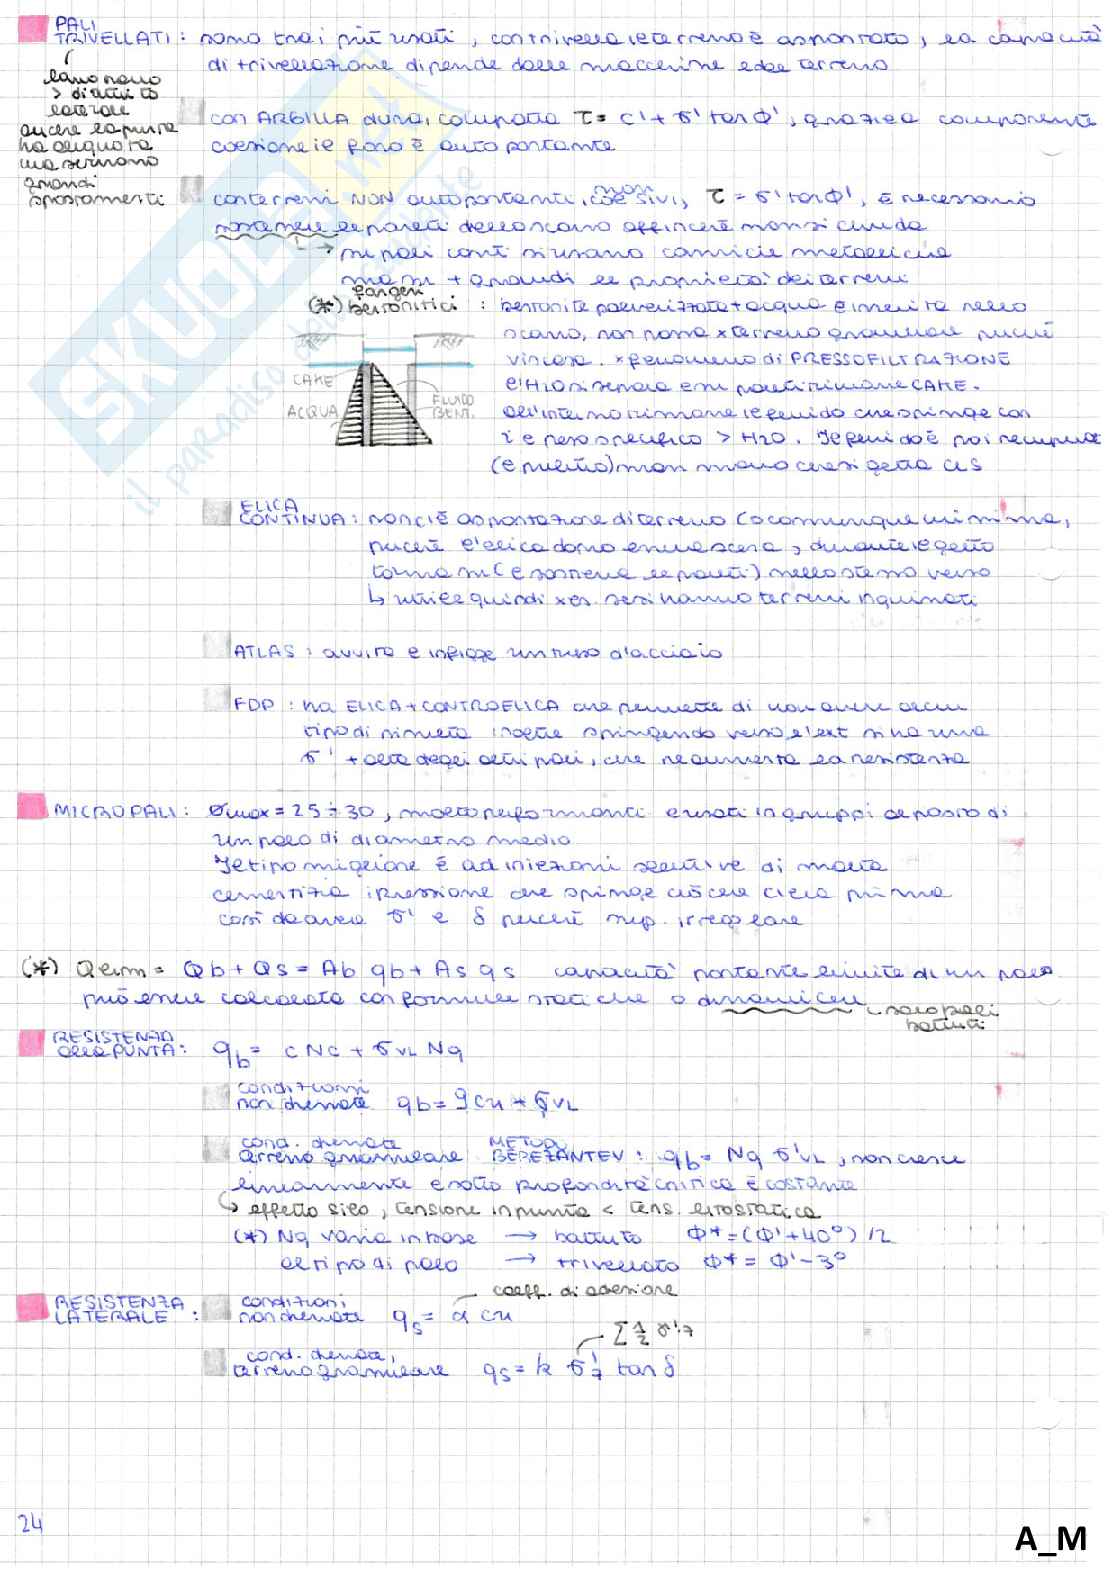 PALI
TRIVELLATI : sono tra i più usati, con trivella il terreno è asportato, la capacità
di trivellazione dipende dalle macchine e dal terreno
lavorano
> di attrito
laterale
anche la punta
ha acquota
ma servono
grandi
spostamenti
con ARGILLA dura, compatta τ = c' + σ' tan Φ', grazie a componente
coesione il foro è autoportante
con terreni NON autoportanti, non coesivi, τ = σ' tan Φ', è necessario
sostenere le pareti dello scavo affinché non si chiuda
→ su pali corti si usano camicie metalliche
ma su + grandi le proprietà dei terreni
(*) fanghi bentonitici : bentonite polverizzata + acqua è inserita nello
scavo, non passa x terreno granulare perché
viscosa. x fenomeno di PRESSOFILTRAZIONE
l'H2O si separa e su pareti rimane CAKE.
all'interno rimane il fluido che spinge con
il peso specifico > H2O. Il fluido è poi recuperato
(e pulito) man mano che si getta cls
CAKE
ACQUA
FLUIDO
BENT.
ELICA
CONTINUA : non c'è asportazione di terreno (o comunque minima,
perché l'elica dopo essere scesa, durante il getto
torna su (e sostiene le pareti) nello stesso verso
↳ utile quindi x es. se si hanno terreni inquinati
ATLAS : avvita e infigge un tubo d'acciaio
FDP : ha ELICA + CONTROELICA che permette di non avere alcun
tipo di risulta inoltre spingendo verso l'ext si ha una
σ' + alta degli altri pali, che ne aumenta la resistenza
MICROPALI : ømax = 25 ÷ 30, molto performanti e usati in gruppi al posto di
un palo di diametro medio
Il tipo migliore è ad iniezioni selettive di malta
cementizia in pressione che spinge
così da avere σ' e δ perché sup. irregolare
(*) Qlim = Qb + Qs = Ab qb + As qs capacità portante limite di un palo
può essere calcolata con formule statiche o dinamiche
solo pali
battuti
RESISTENZA
alla PUNTA : qb = c Nc + σvL Nq
condizioni
non drenate qb = 9 cu + σvL
cond. drenate
terreno granulare METODO BEREZANTEV : qb = Nq σ'vL, non cresce
linearmente e sotto profondità critica è costante
↳ effetto silo, tensione in punta < tens. litostatica
(*) Nq varia in base → battuto Φ* = (Φ' + 40°) /2
al tipo di palo → trivellato Φ* = Φ' - 3°
RESISTENZA
LATERALE :
condizioni
non drenate qs = α cu
coeff. di adesione
cond. drenate,
terreno granulare qs = k σ'z tan δ
Σ 1/2 γ'z
24
A_M
SKUOLA.net
il paradiso dello studente